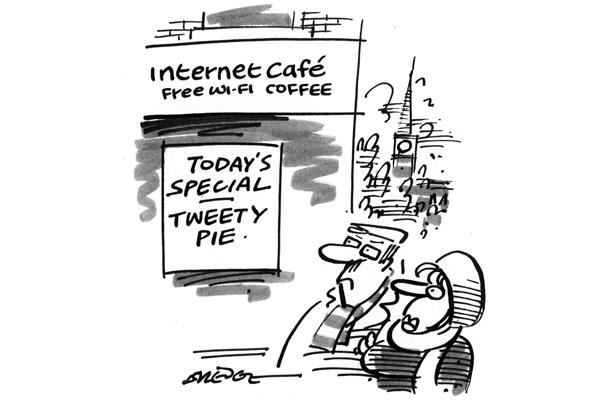 Internet Café
Free Wi-Fi COFFEE
TODAY'S
SPECIAL
TWEETY
PIE.